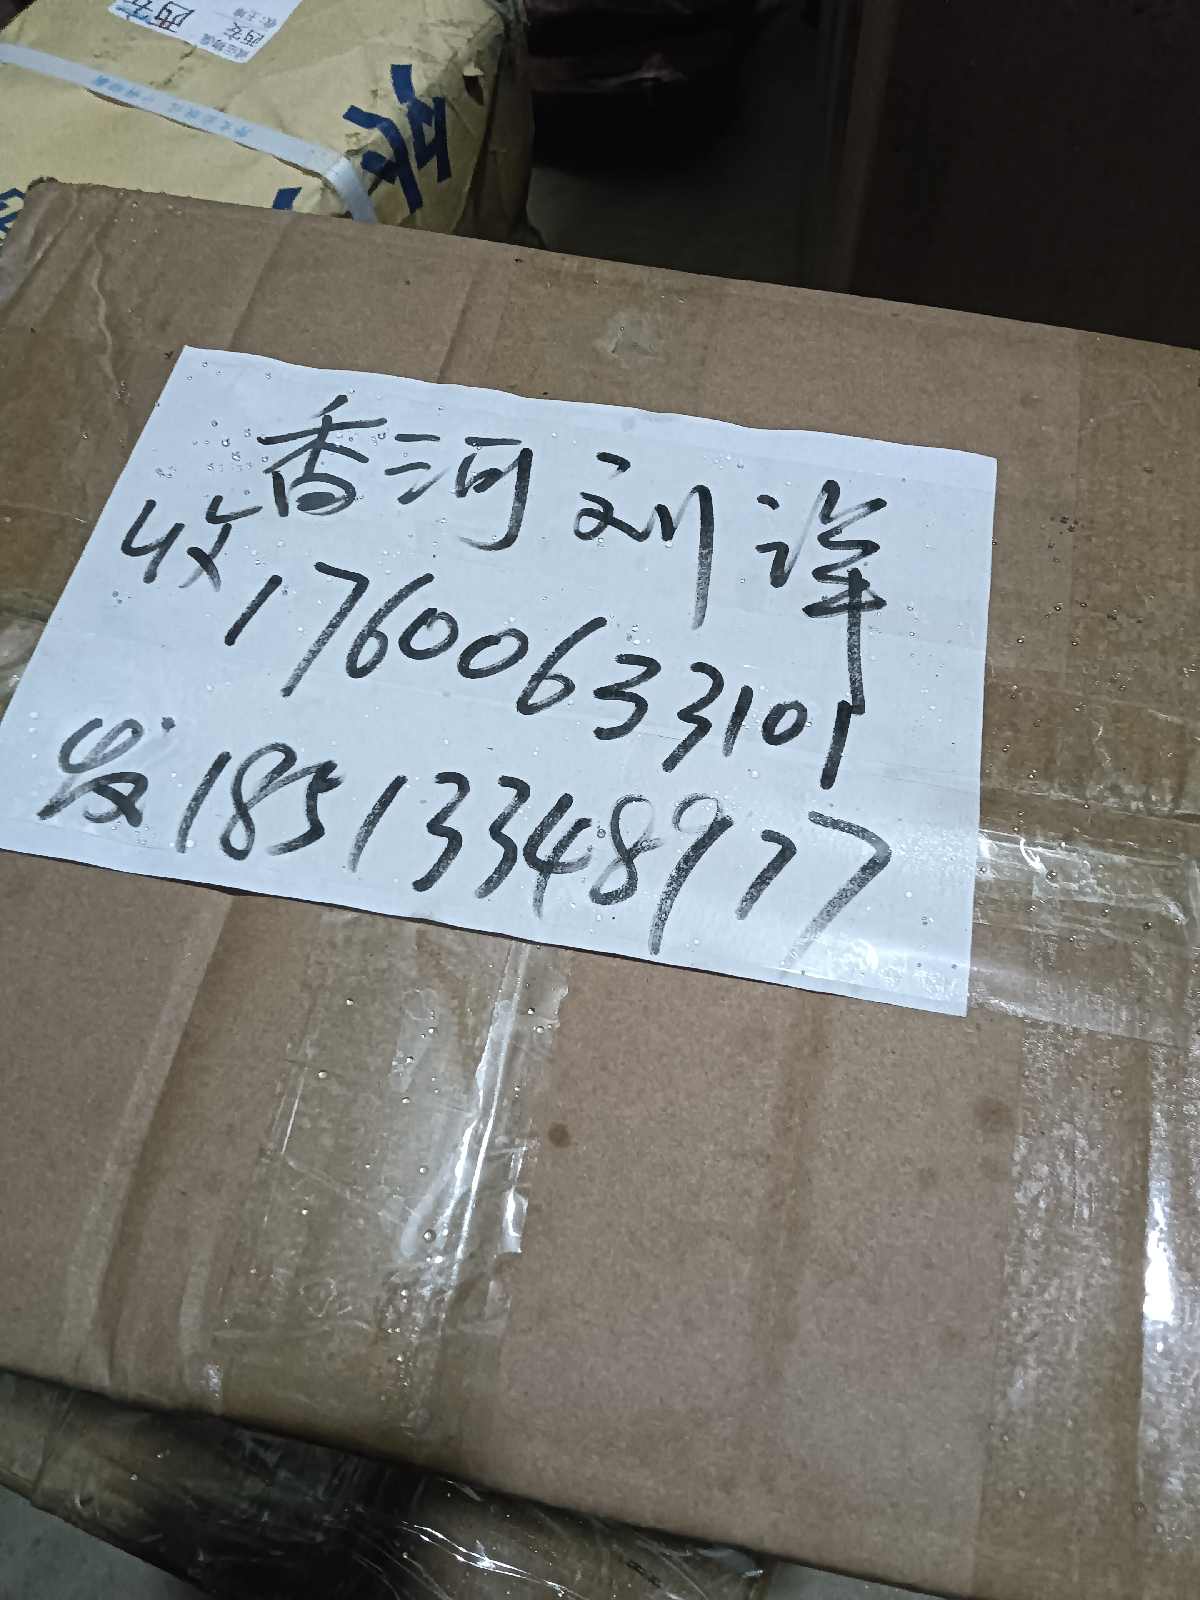 西安
西安
香河刘泽
收17600633101
发18513348977